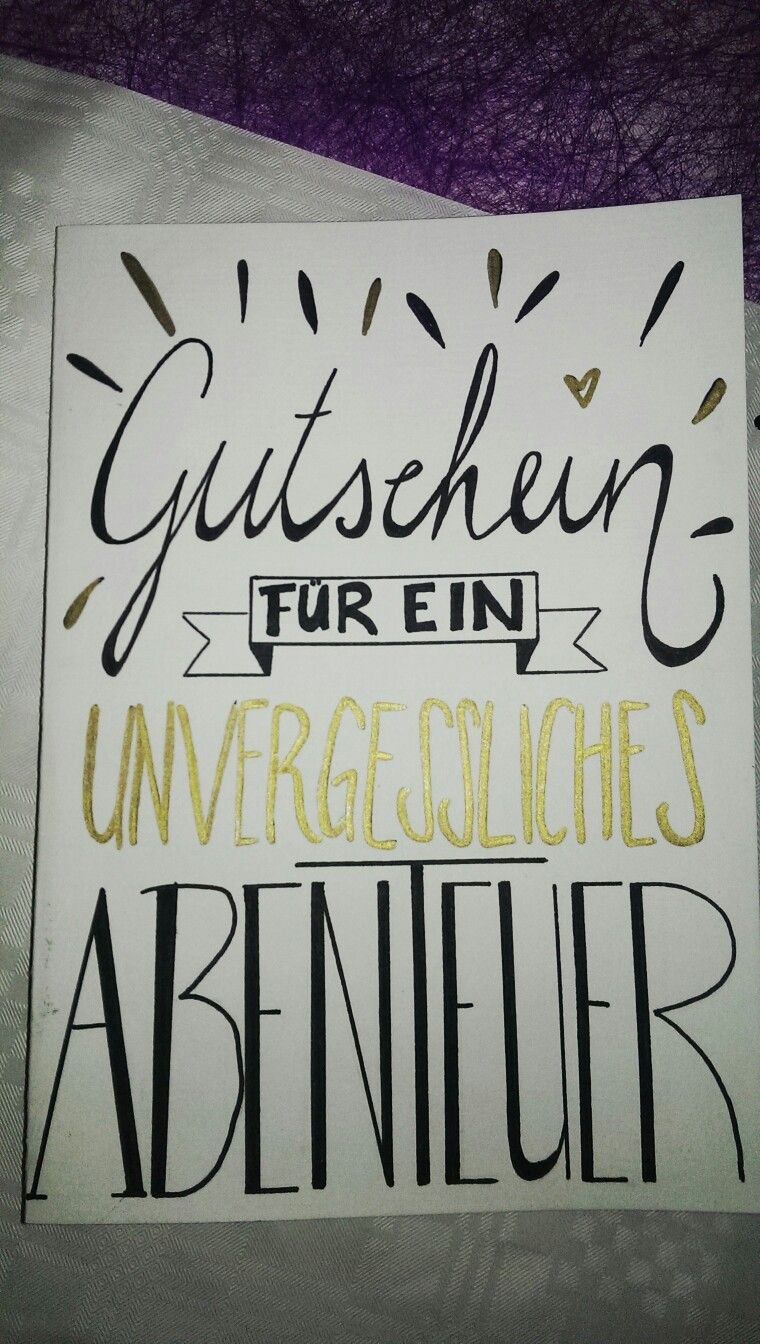 Gutschein
FÜR EIN
UNVERGESSLICHES
ABENTEUER